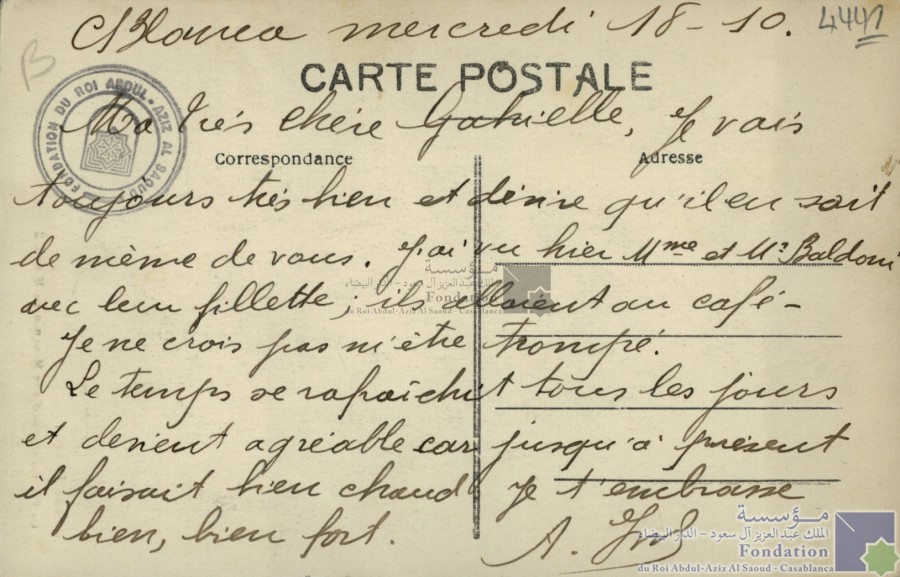 CBlanca mercredi 18-10.
4441
B
CARTE POSTALE
FONDATION DU ROI ABDUL-AZIZ AL SAOUD
Ma très chère Gabrielle, Je vais
Correspondance
Adresse
toujours très bien et désire qu'il en soit
de même de vous. J'ai vu hier Mme et Mr Baldoni
avec leur fillette; ils allaient au café-
Je ne crois pas m'être trompé.
Le temps se rafraîchit tous les jours
et devient agréable car jusqu'à présent
il faisait bien chaud Je t'embrasse
bien, bien fort. A.
مؤسسة
الملك عبد العزيز آل سعود - الدار البيضاء
Fondation
du Roi Abdul-Aziz Al Saoud - Casablanca
مؤسسة
الملك عبد العزيز آل سعود - الدار البيضاء
Fondation
du Roi Abdul-Aziz Al Saoud - Casablanca